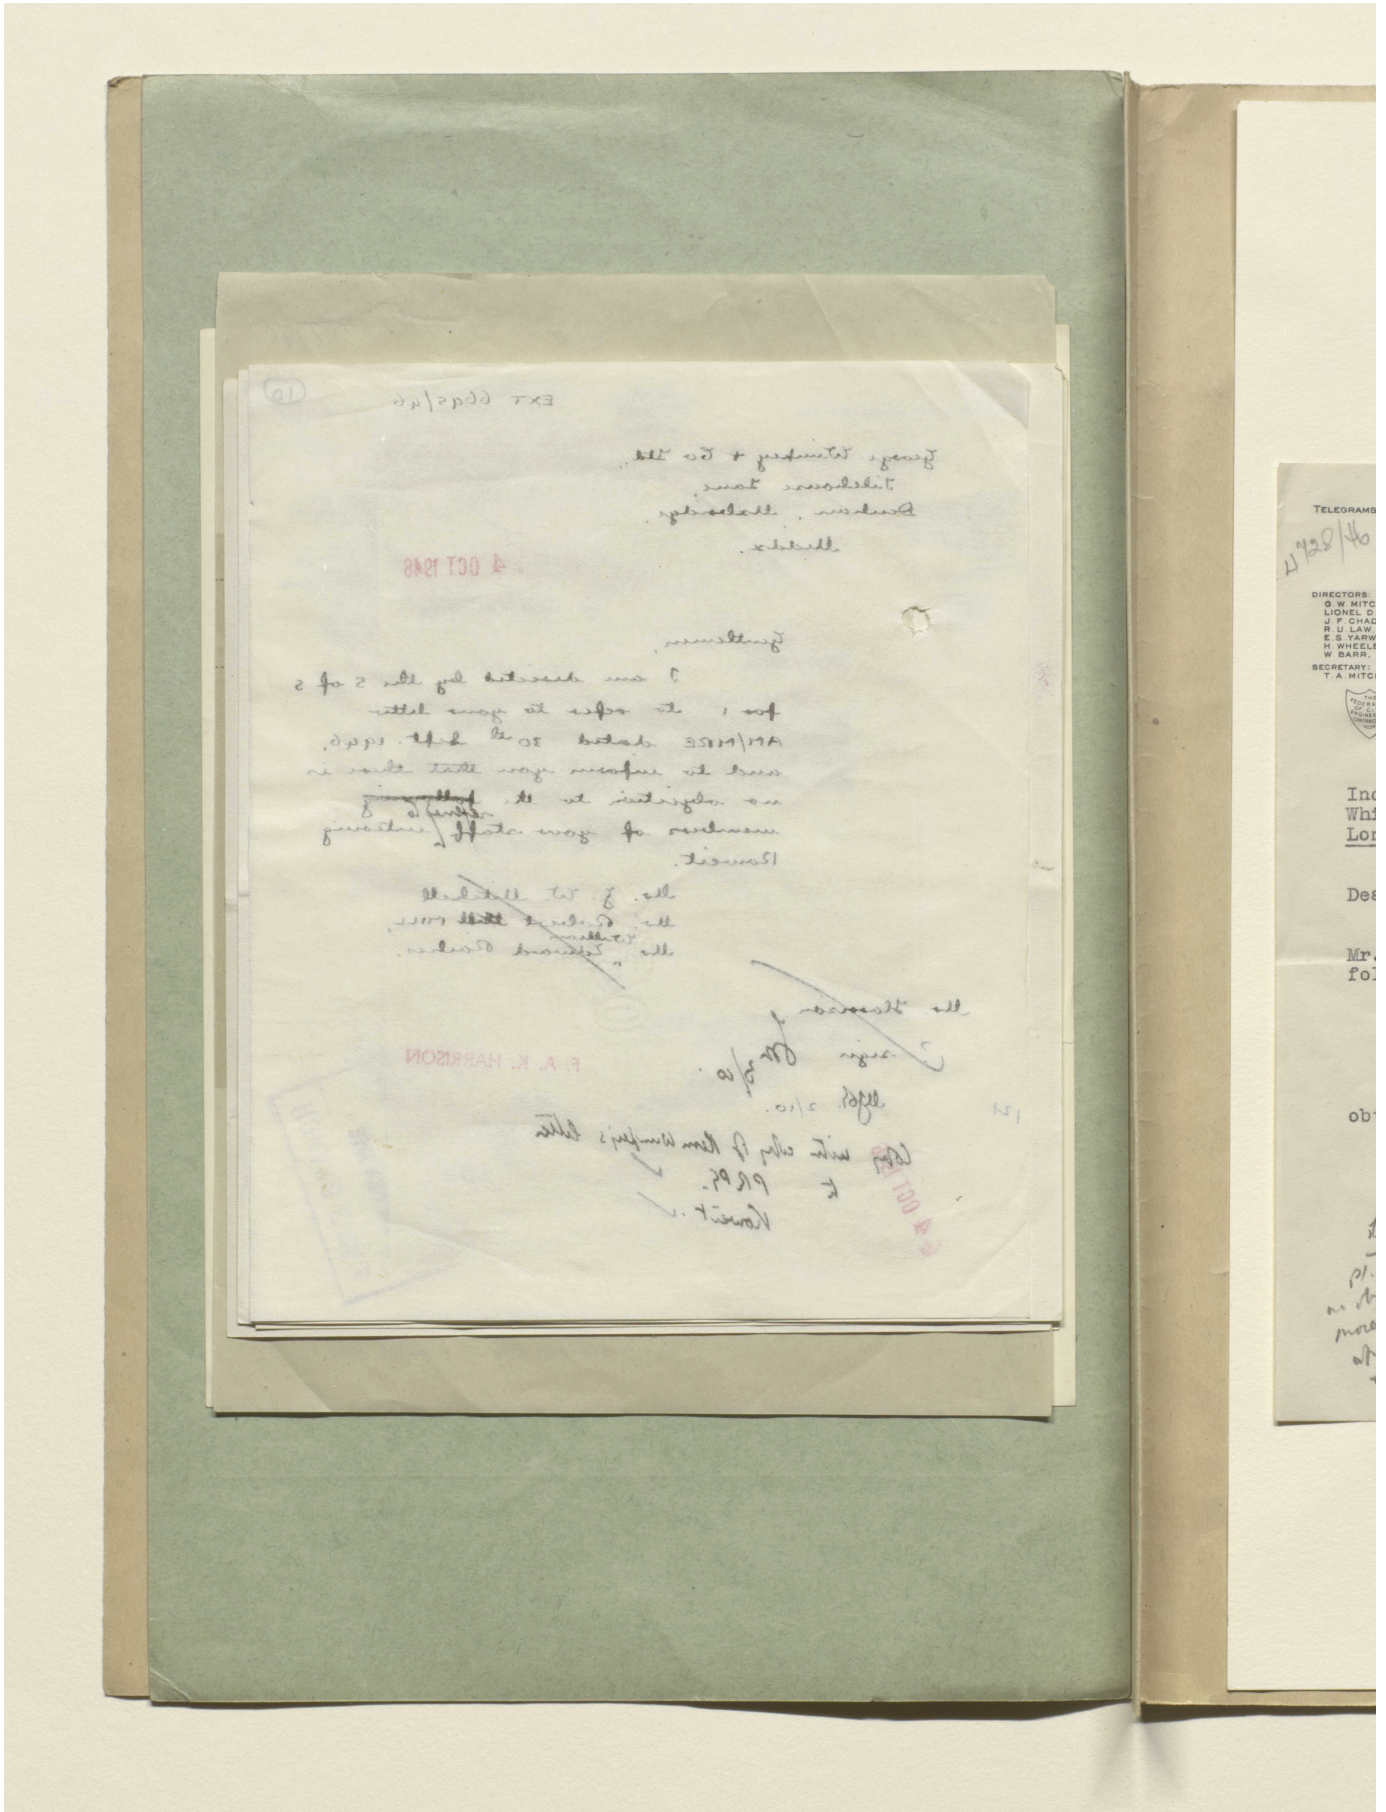 10
EXT 6695/46
George Wimpey & Co Ltd.
Tilehouse Lane,
Denham, Uxbridge,
Middx.
4 OCT 1946
Gentlemen,
I am directed by the S of S
for I to refer to your letter
AM/MRE dated 30th Sept. 1946,
and to inform you that there is
no objection to the following
members of your staff entering
Koweit.
Mr. G. W. Mitchell
Mr. Robert
William
Mr. Edward
Mr. Harrison
sign
3/10
2/10.
F. A. K. HARRISON
121
Copy with copy of Wimpey's letter
to PRPG.
Koweit
4 OCT 1946
TELEGRAMS
4728/46
DIRECTORS:
G. W. MITC
LIONEL D
J. F. CHAD
R. U. LAW,
E. S. YARW
H. WHEELE
W. BARR,
SECRETARY:
T. A. MITCH
THE
FEDERA
OF CI
ENGINEE
CONTRACT
Ind
Whi
Lon
Dea
Mr.
fol
ob